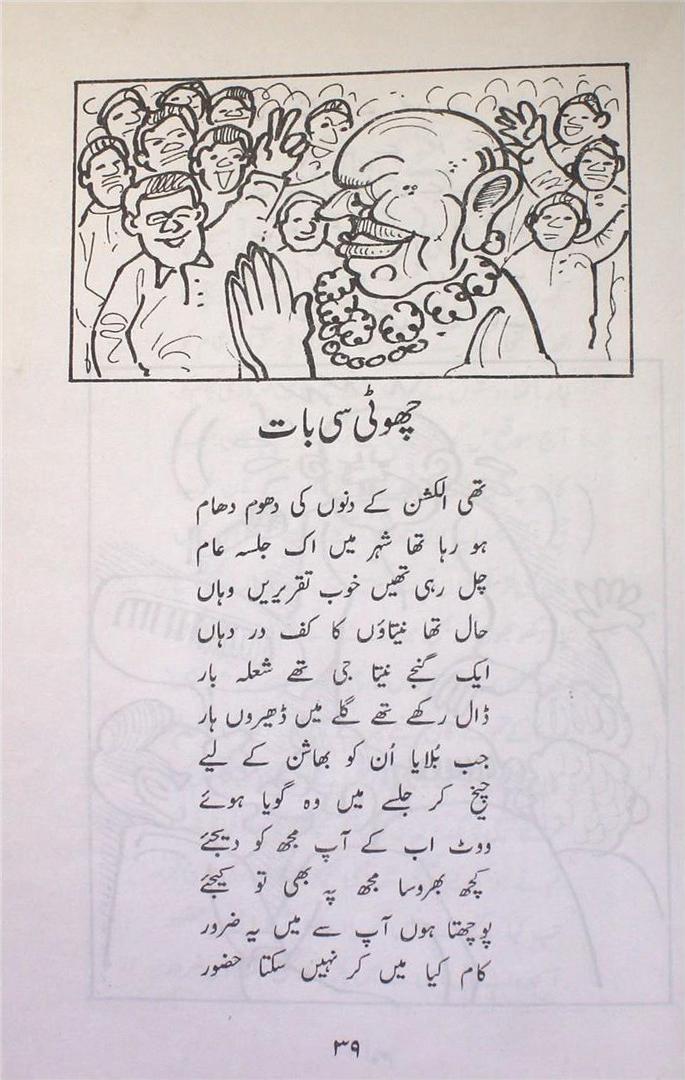 چھوٹی سی بات
تھی الکشن کے دنوں کی دھوم دھام
ہو رہا تھا شہر میں اک جلسہ عام
چل رہی تھیں خوب تقریریں وہاں
حال تھا نیتاؤں کا کف در دہاں
ایک گنجے نیتا جی تھے شعلہ بار
ڈال رکھے تھے گلے میں ڈھیروں ہار
جب بُلایا اُن کو بھاشن کے لیے
چیخ کر جلسے میں وہ گویا ہوئے
ووٹ اب کے آپ مجھ کو دیجئے
کچھ بھروسا مجھ پہ بھی تو کیجئے
پوچھتا ہوں آپ سے میں یہ ضرور
کام کیا میں کر نہیں سکتا حضور
۳۹